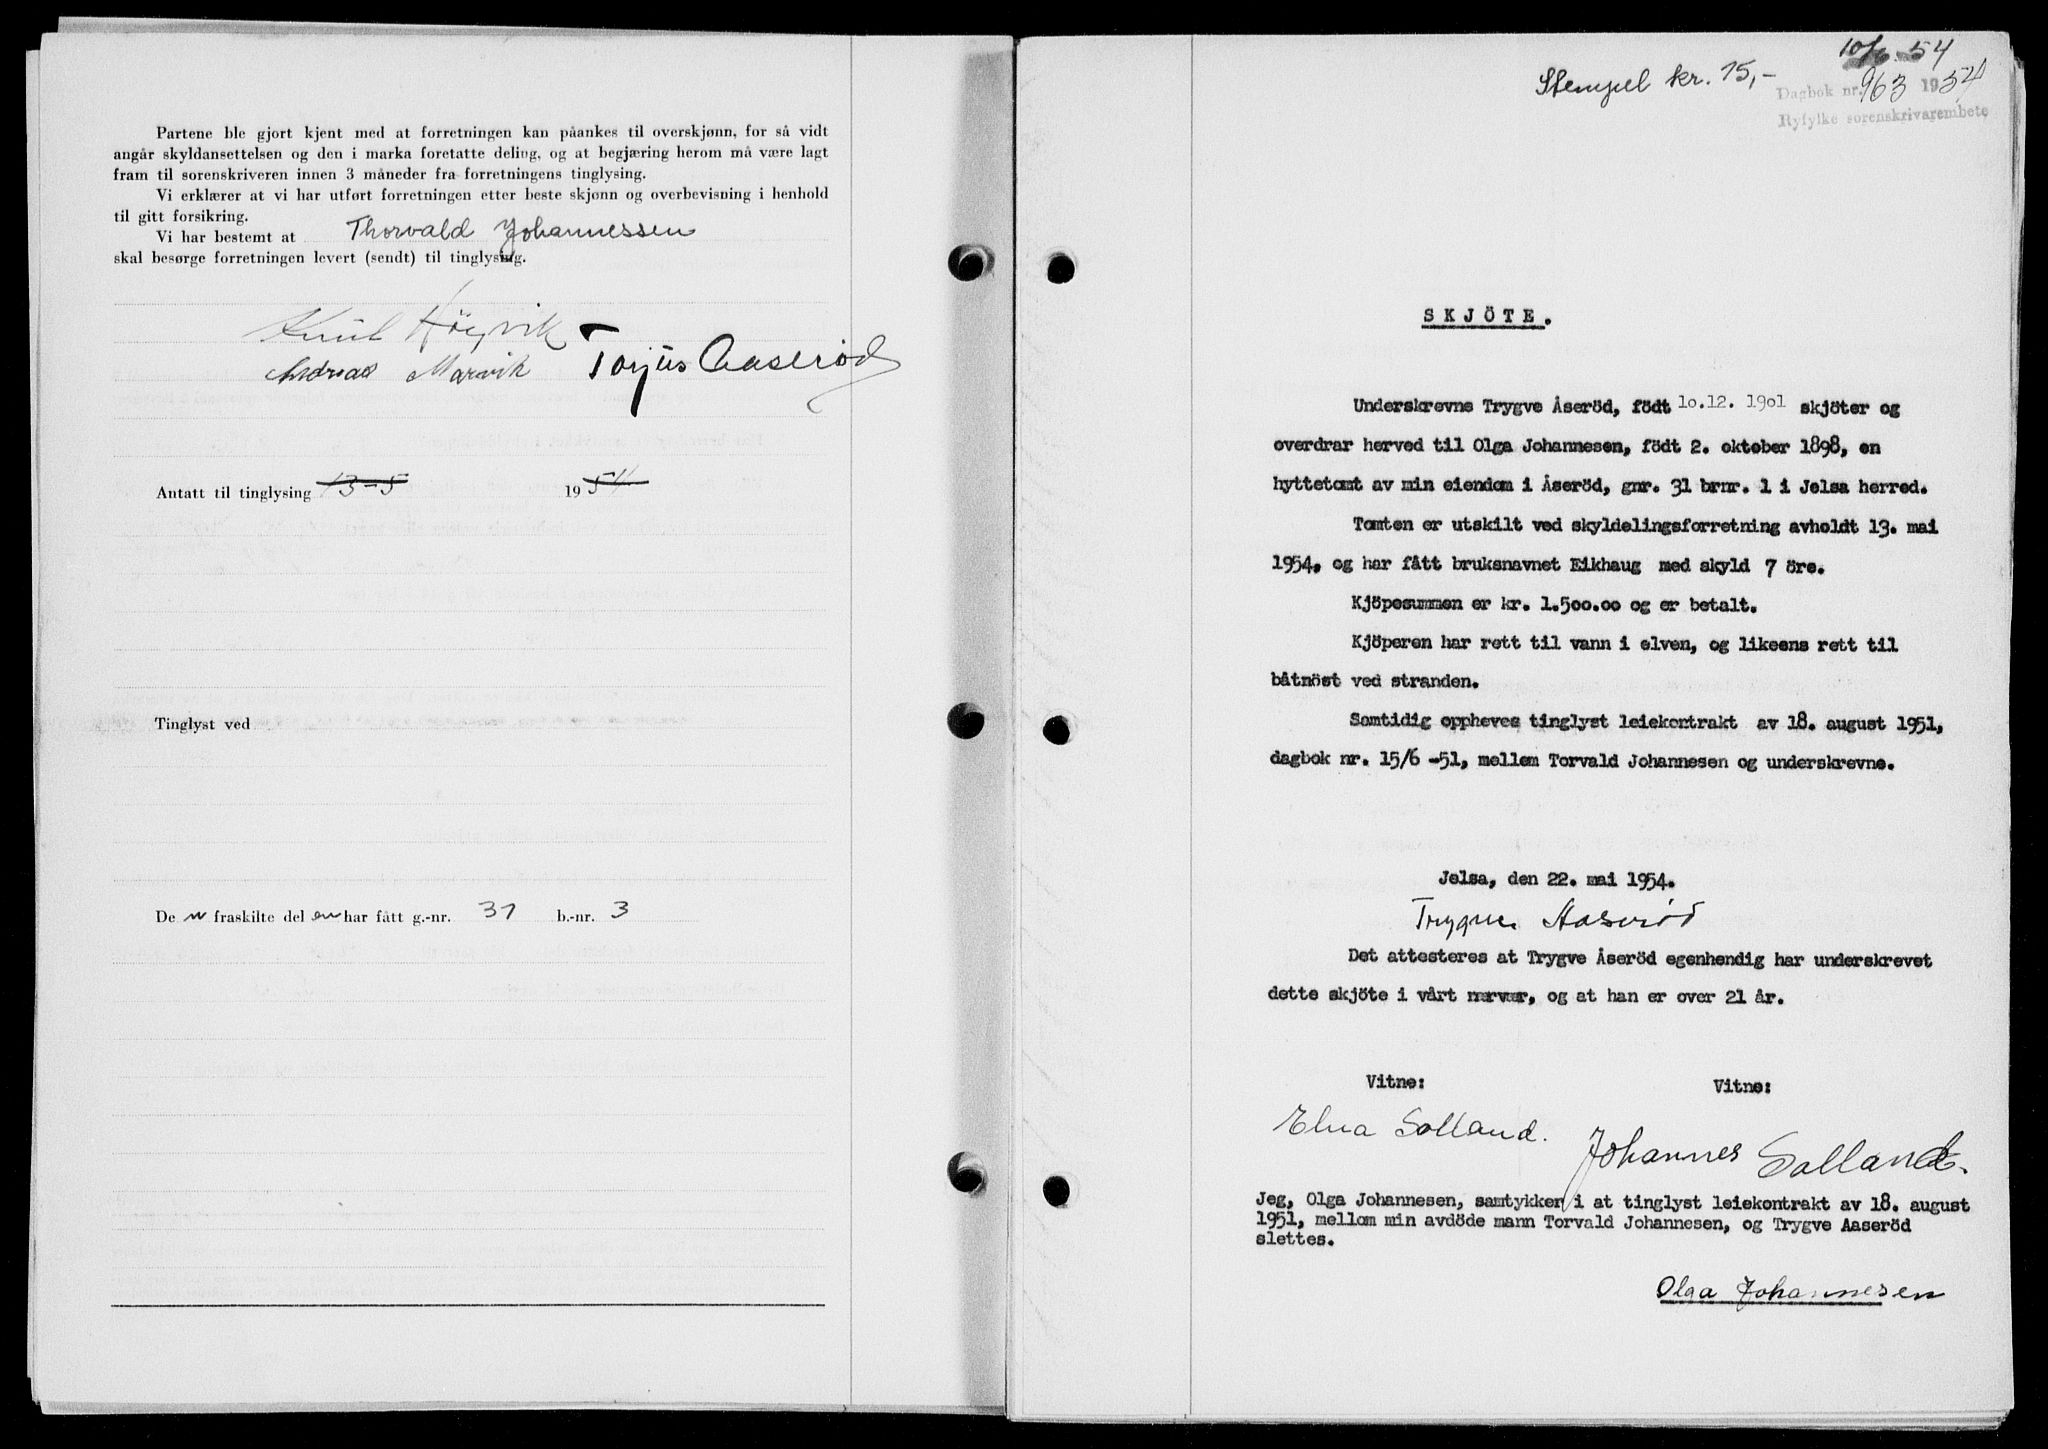 Partene ble gjort kjent med at forretningen kan påankes til overskjønn, for så vidt
angår skyldansettelsen og den i marka foretatte deling, og at begjæring herom må være lagt
fram til sorenskriveren innen 3 måneder fra forretningens tinglysing.
Vi erklærer at vi har utført forretningen etter beste skjønn og overbevisning i henhold
til gitt forsikring.
Vi har bestemt at Thorvald Johannessen
skal besørge forretningen levert (sendt) til tinglysing.
Knut Høyvik
Andreas Marvik Torjus Aaserød
Antatt til tinglysing 13-5 1954
Tinglyst ved
De n fraskilte del en har fått g.-nr. 31 b.-nr. 3
10/6.54
Stempel kr. 15,-
Dagbok nr. 963 1954
Ryfylke sorenskrivarembete
SKJÖTE.
Underskrevne Trygve Åseröd, födt 10.12. 1901 skjöter og
overdrar herved til Olga Johannesen, födt 2. oktober 1898, en
hyttetomt av min eiendom i Åseröd, gnr. 31 brnr. 1 i Jelsa herred.
Tomten er utskilt ved skyldelingsforretning avholdt 13. mai
1954, og har fått bruksnavnet Eikhaug med skyld 7 öre.
Kjöpesummen er kr. 1.500.00 og er betalt.
Kjöperen har rett til vann i elven, og likeens rett til
båtnöst ved stranden.
Samtidig oppheves tinglyst leiekontrakt av 18. august 1951,
dagbok nr. 15/6 -51, mellem Torvald Johannesen og underskrevne.
Jelsa, den 22. mai 1954.
Trygve Aaserød
Det attesteres at Trygve Åseröd egenhendig har underskrevet
dette skjöte i vårt nærvær, og at han er over 21 år.
Vitne: Vitne:
Elna Solland. Johannes Solland.
Jeg, Olga Johannesen, samtykker i at tinglyst leiekontrakt av 18. august
1951, mellom min avdöde mann Torvald Johannesen, og Trygve Aaseröd
slettes.
Olga Johannesen